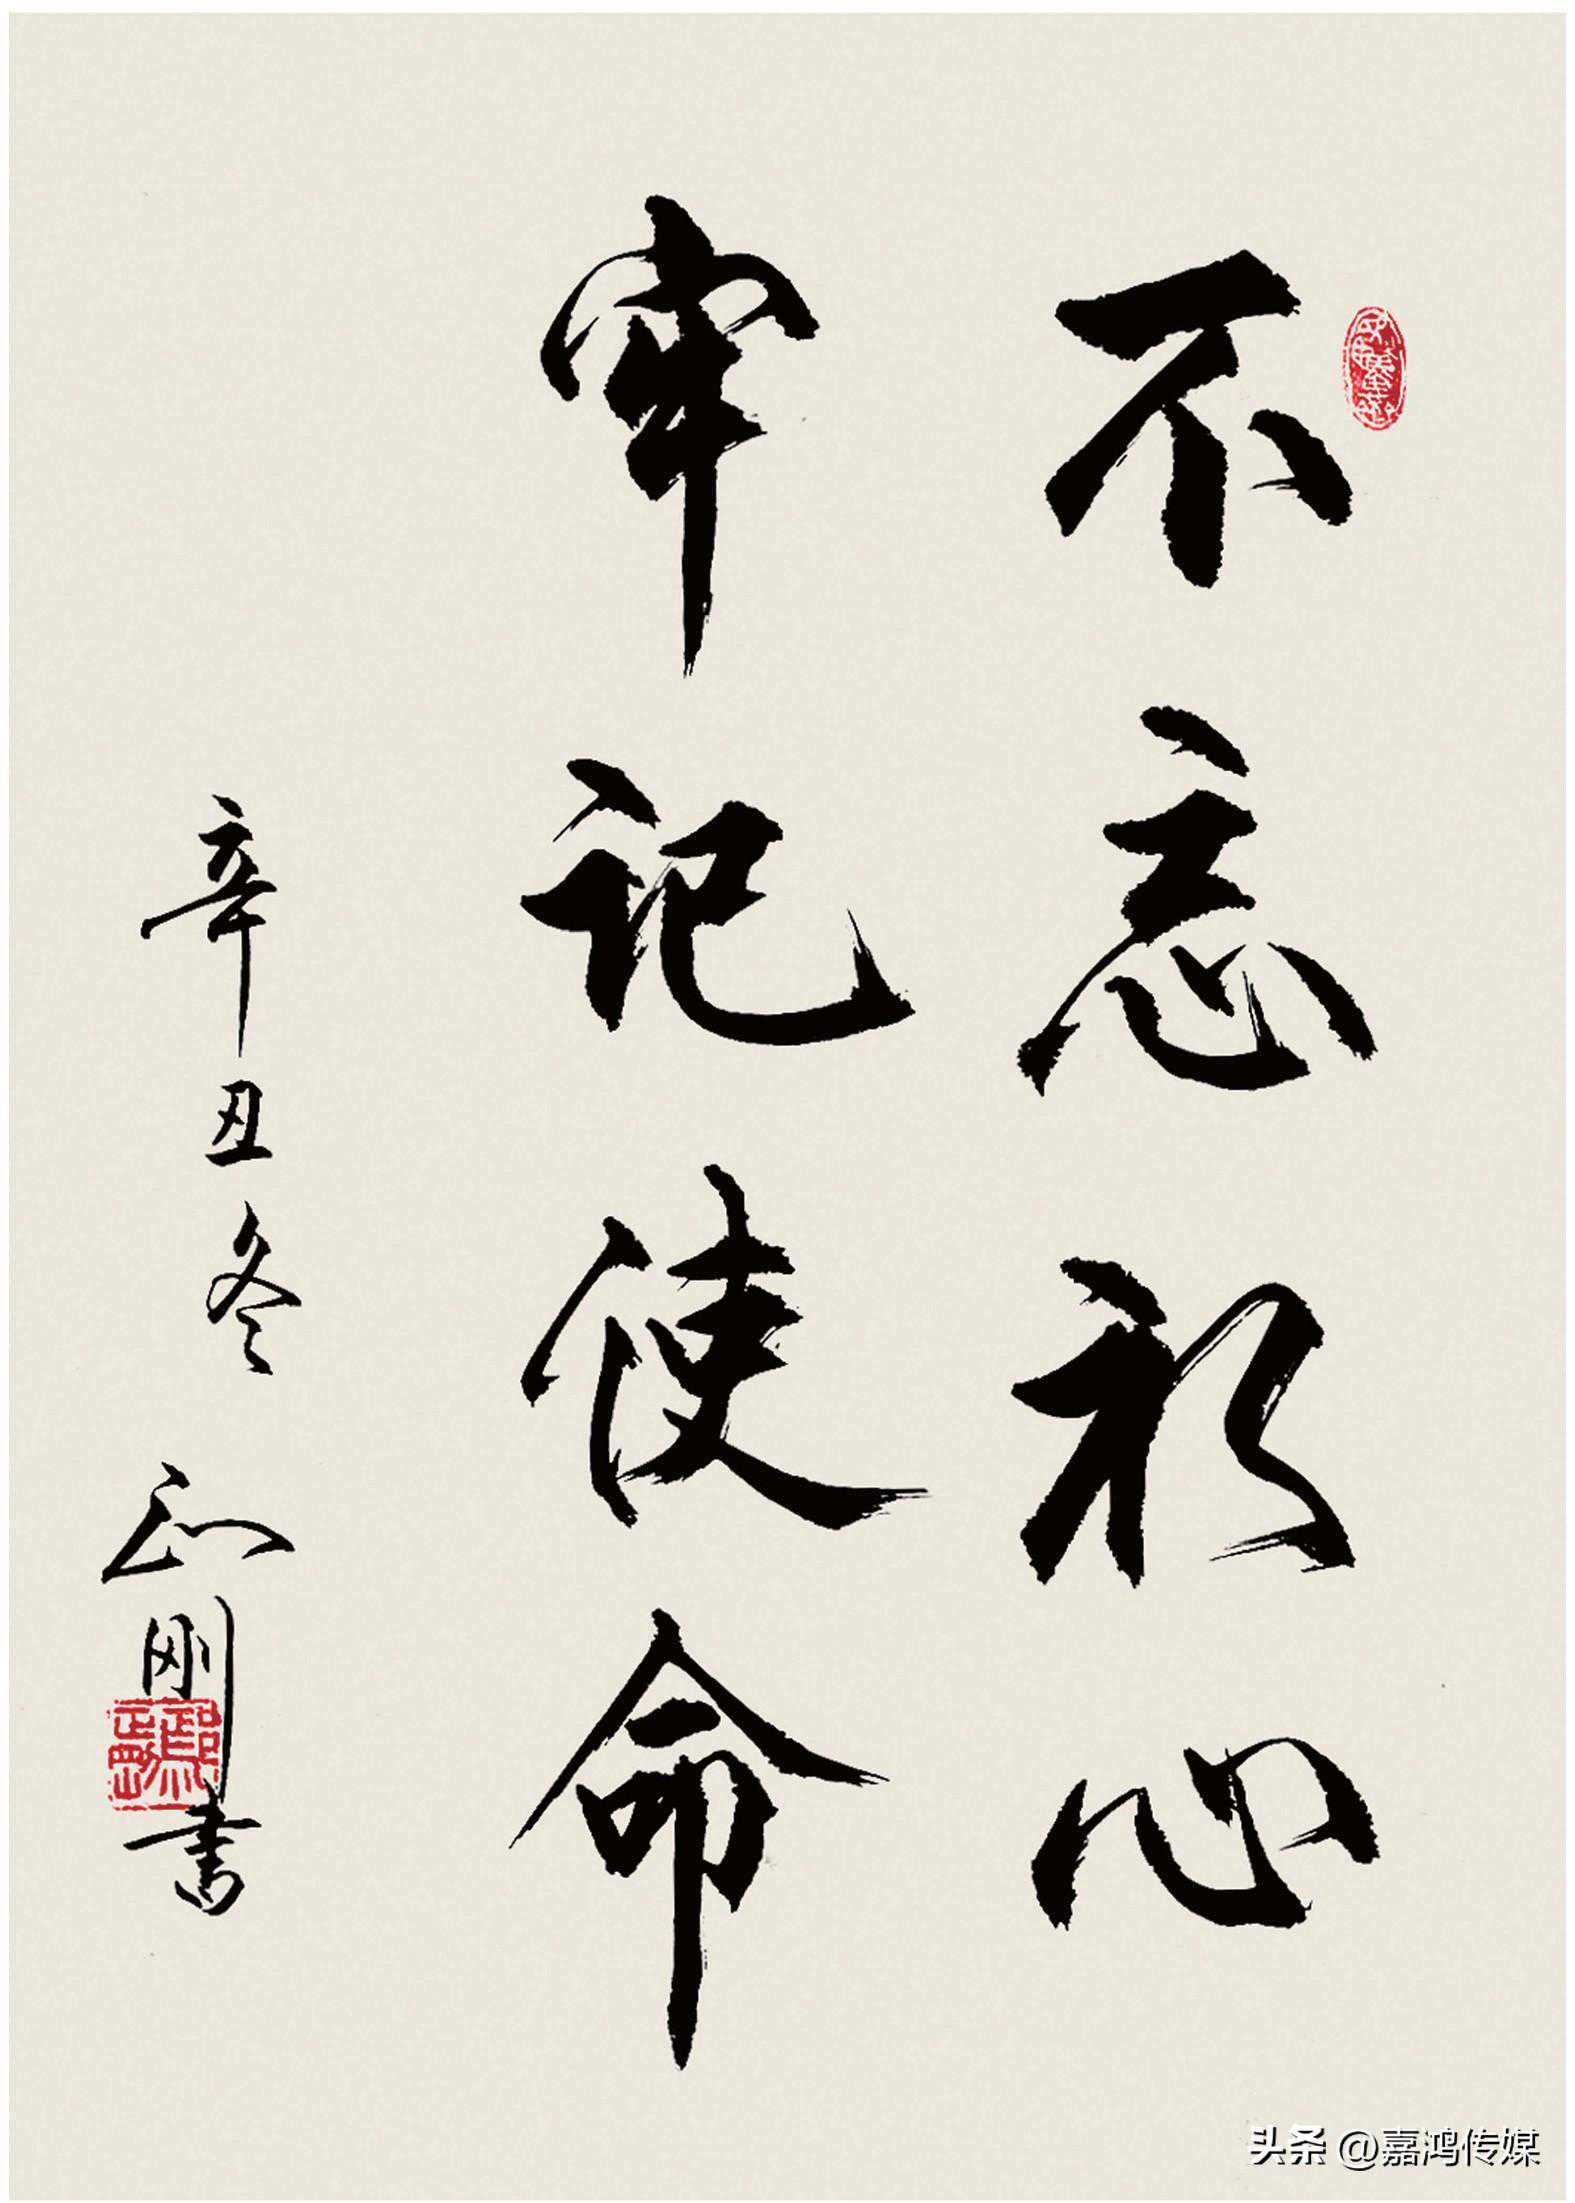 不忘初心
牢记使命
辛丑冬 正刚书
头条 @嘉鸿传媒